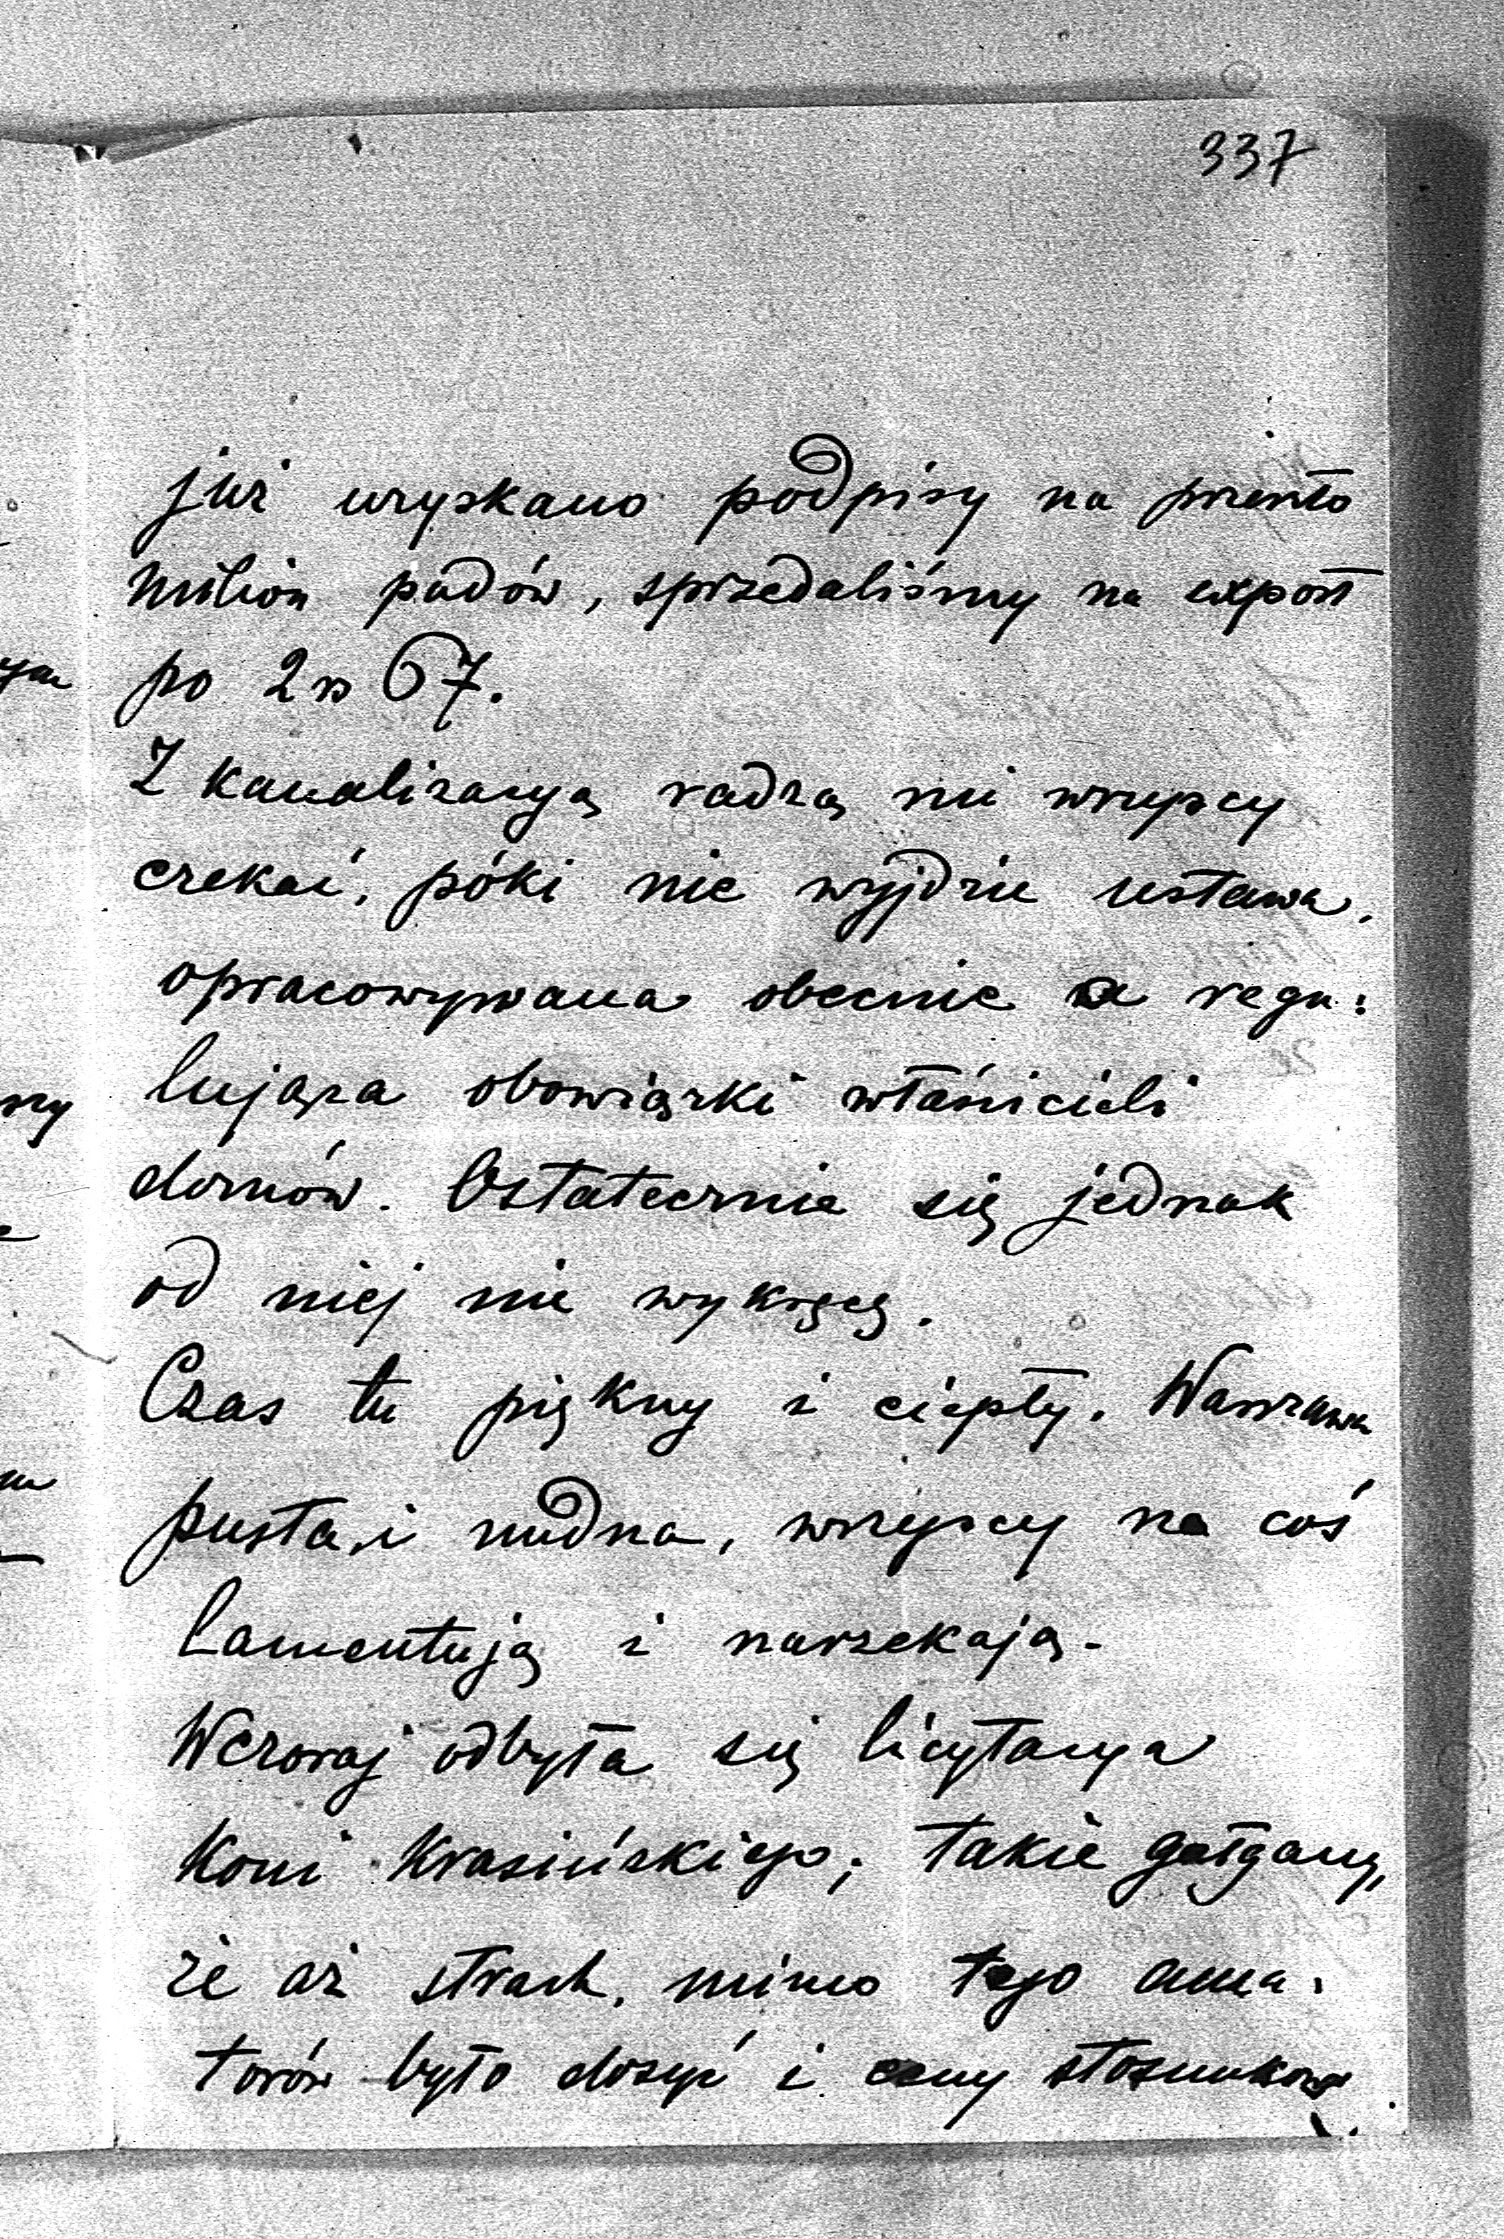 337
już uzyskano podpisy na przeszło
milion pudów, sprzedaliśmy na export
po 2 rs 67.
Z kanalizacyą radzą mi wszyscy
czekać, póki nie wyjdzie ustawa,
opracowywana obecnie a regu:
lująca obowiązki właścicieli
domów. Ostatecznie się jednak
od niej nie wykręcę.
Czas tu piękny i ciepły. Warszawa
pusta i nudna, wszyscy na coś
lamentują i narzekają.
Wczoraj odbyła się licytacya
koni Krasińskiego; takie gałgany,
że aż strach, mimo tego ama:
torów było dosyć i ceny stosunkowo